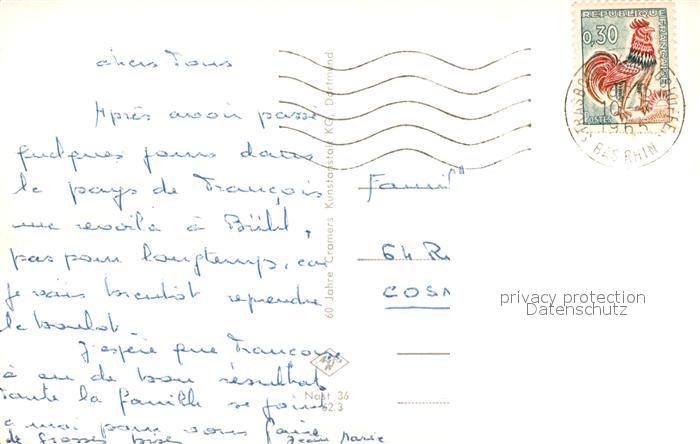 chers Tous
Après avoir passé
quelques jours dans
le pays de François
me revoilà à Bühl,
pas pour longtemps, car
je vais bientôt reprendre
le boulot.
J'espère que Françoise
à eu de bons résultats
Toute la famille se joint
à moi pour vous faire
de grosses bises
Jean Marie
60 Jahre Cramers Kunstanstalt KG, Dortmund
Nast 36
62 3
REPUBLIQUE FRANÇAISE
0,30
POSTES
BAS RHIN
Famill
64 R
COSN
privacy protection
Datenschutz